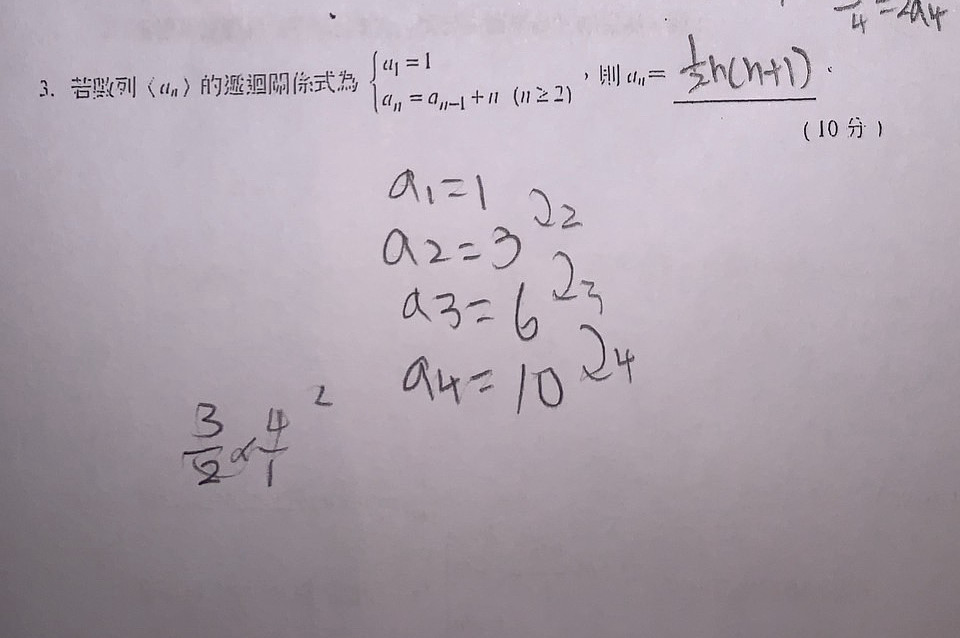 /4 = 2a4
3. 若數列〈aₙ〉的遞迴關係式為 { a₁ = 1
aₙ = aₙ₋₁ + n (n ≥ 2) ,則 aₙ = 1/2 n(n+1) .
(10 分)
a1=1
2
a2=3
3
a3=6
4
a4=10
2
3/2 × 4/1